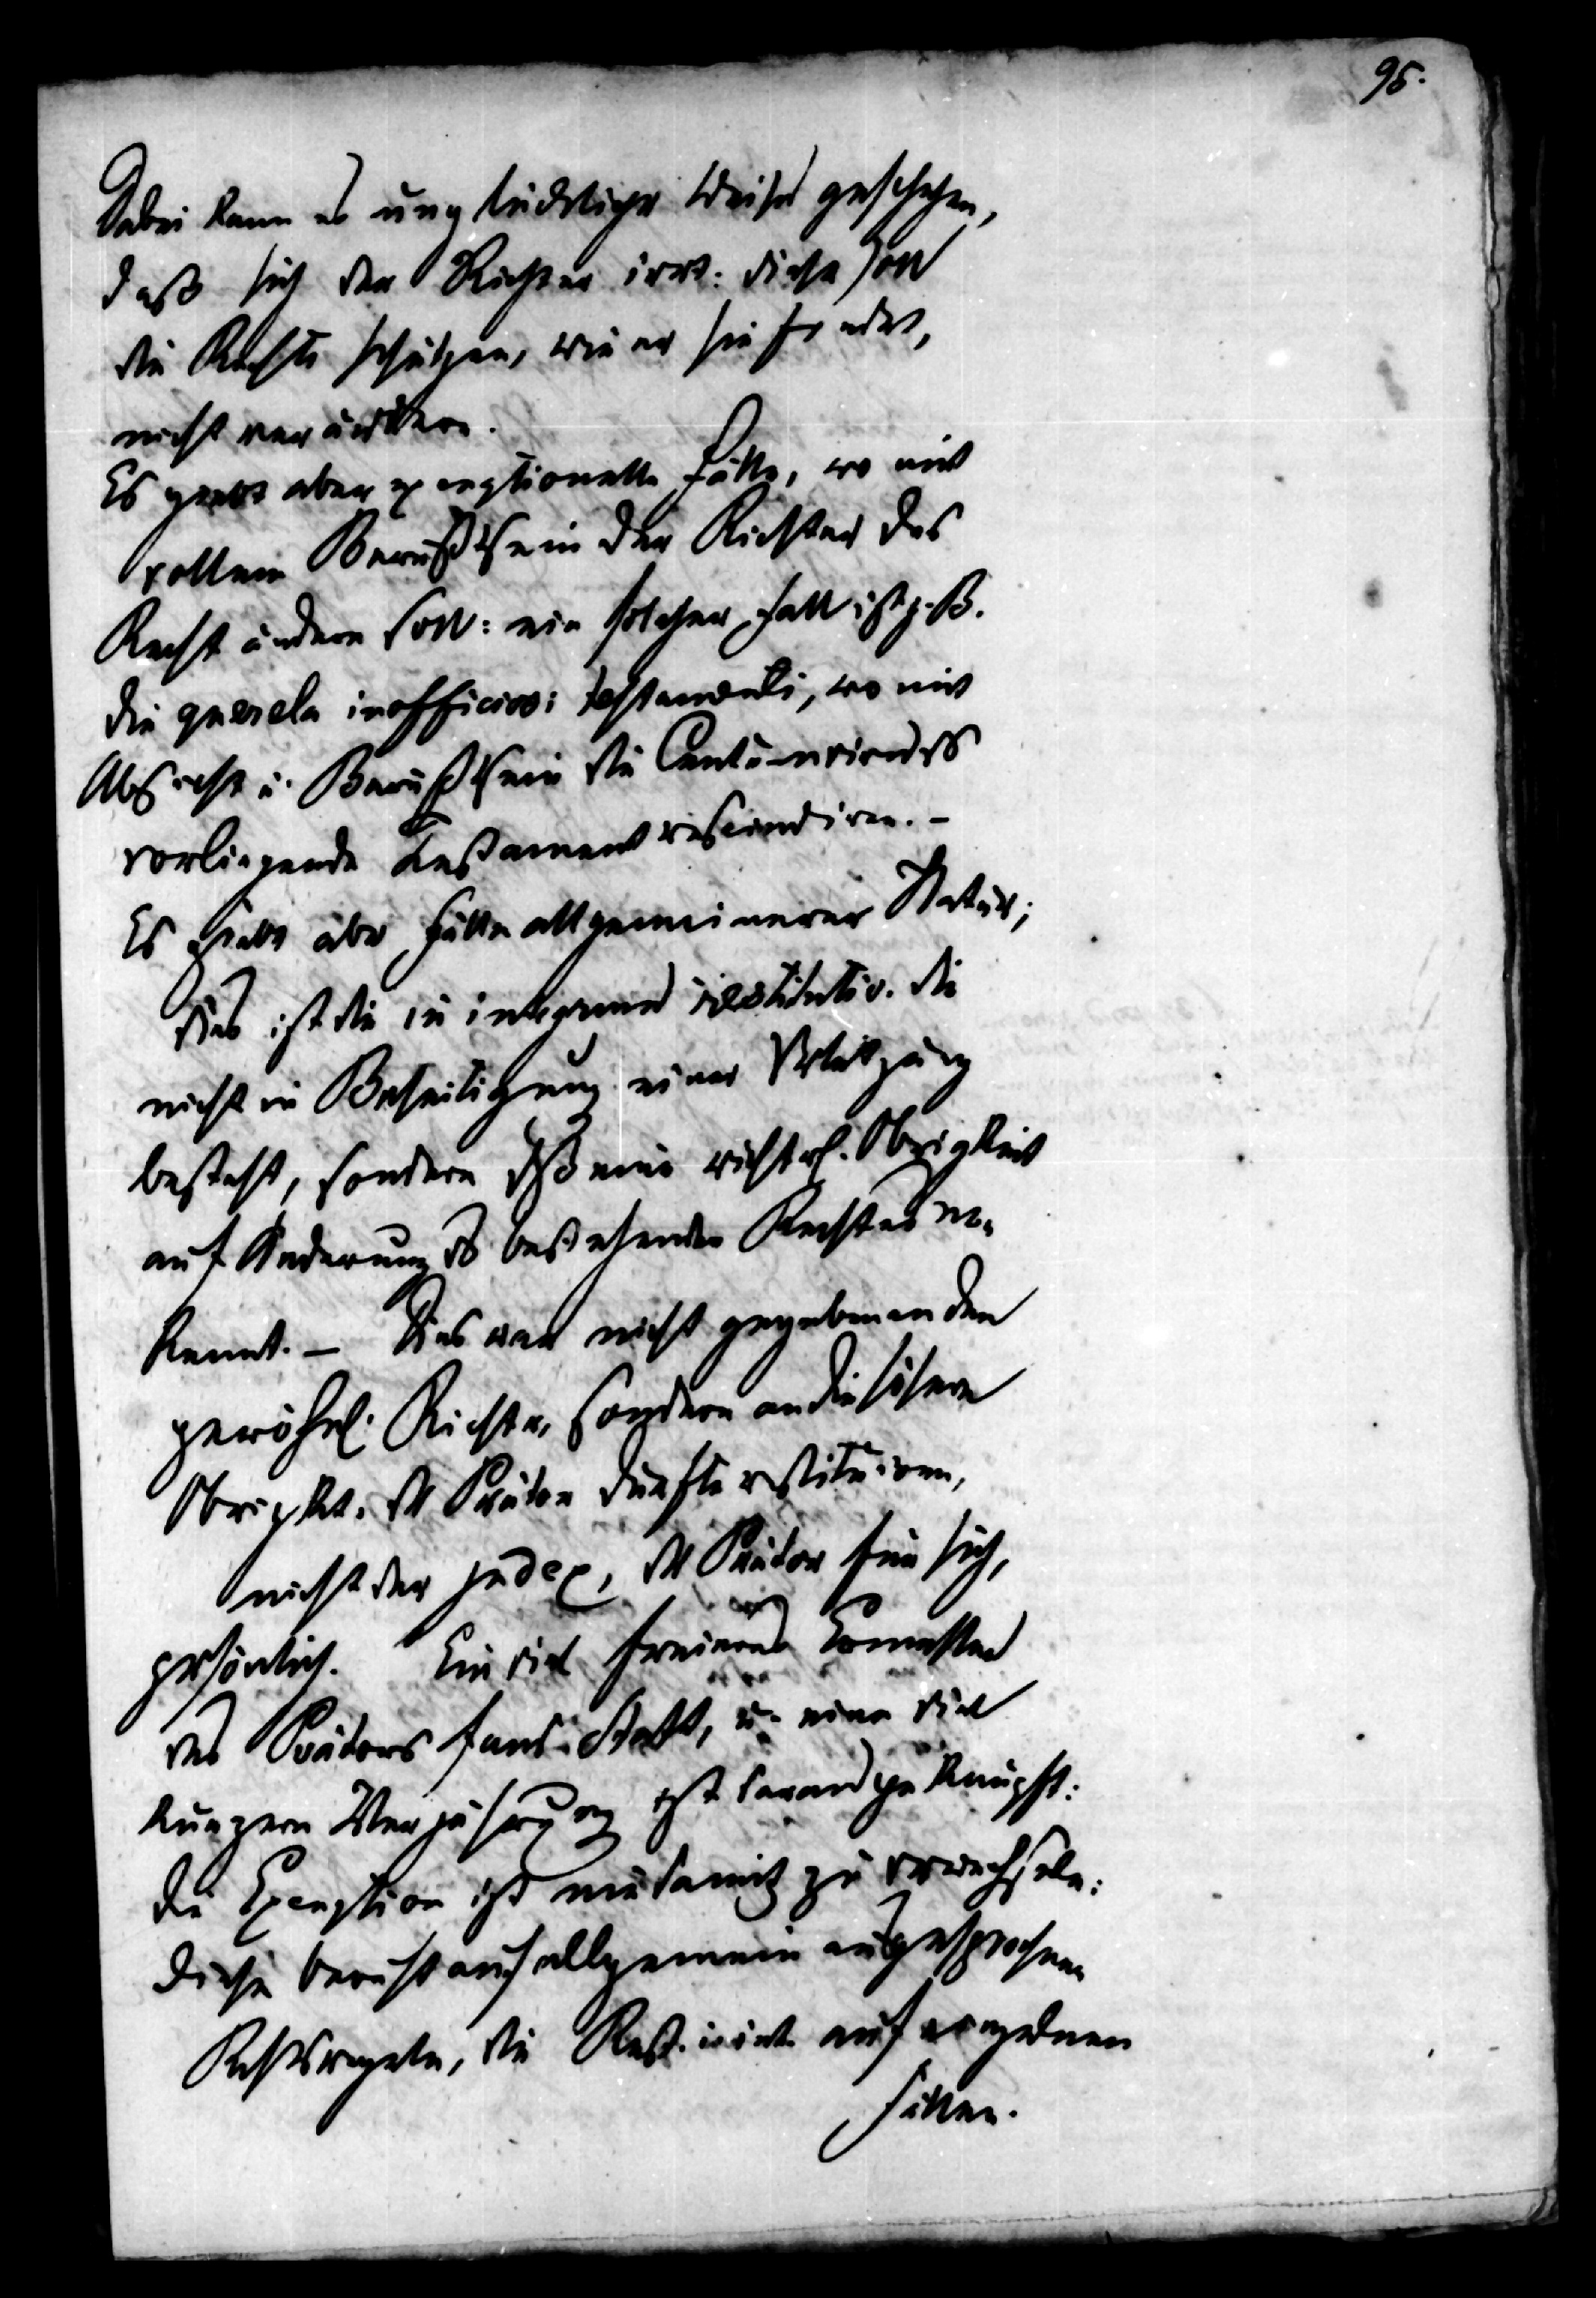 95.
Dabei kann es unglücklicher Weise geschehen,
daß sich der Richter irrt: dieser soll
die Rechte schützen, wie er sie findet,
nicht verändern.
Es giebt aber exceptionelle Fälle, wo mit
vollem Bewußtsein der Richter das
Recht ändern soll: ein solcher Fall ist z. B.
die querela inofficiosi testamenti, wo mit
Absicht u. Bewußtsein die Centumvirn das
vorliegende Testament rescindiren. –
Es giebt aber Fälle allgemeinerer Natur;
Dies ist die in integrum restitutio. die
nicht in Beseitigung einer Verletzung
besteht, sondern daß eine richterl. Obrigkeit
auf Änderung des bestehenden Rechtes er-
kennt. – Dies war nicht gegeben an den
gewöhnl. Richter, sondern an die höhere
Obrigkt. der Prätor durfte restituiren,
nicht der judex, der Prätor für sich,
persönlich. Ein viel freieres Ermessen
des Prätors fand statt, u. eine viel
kürzere Verjährung ist daran geknüpft:
die Exception ist nie damit zu verwechseln:
diese beruht auf allgemein ausgesprochenen
Rechtsregeln, die Rest. in int. auf einzelnen
Fällen.